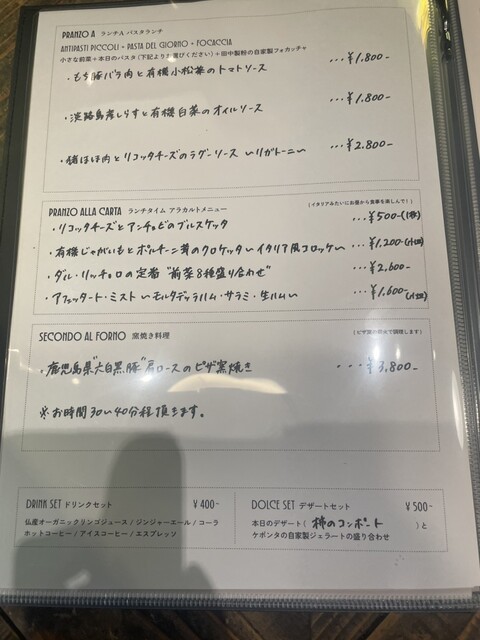 PRANZO A ランチA パスタランチ
ANTIPASTI PICCOLI + PASTA DEL GIORNO + FOCACCIA
小さな前菜+本日のパスタ(下記よりお選びください)+田中製粉の自家製フォカッチャ
・もち豚バラ肉と有機小松菜のトマトソース ...¥1.800-
・淡路島産しらすと有機白菜のオイルソース ...¥1.800-
・猪ほほ肉とリコッタチーズのラグーソース 〜リガトーニ〜 ...¥2.800-
PRANZO ALLA CARTA ランチタイム アラカルトメニュー (イタリアみたいにお昼から食事を楽しんで!)
・リコッタチーズとアンチョビのブルスケッタ ...¥500-
・有機じゃがいもとポルチーニ茸のクロケッタ〜イタリア風コロッケ〜 ...¥1,200-
・ダル・リッチョロの定番"前菜8種盛り合わせ" ...¥2,600-
・アフェッタート・ミスト〜モルタデッラハム・サラミ・生ハム〜 ...¥1,600-
SECONDO AL FORNO 窯焼き料理 (ピザ窯の薪火で調理します)
・鹿児島県"大白黒豚"肩ロースのピザ窯焼き ...¥3,800-
※お時間30〜40分程頂きます。
DRINK SET ドリンクセット ¥400-
仏産オーガニックリンゴジュース / ジンジャーエール / コーラ
ホットコーヒー / アイスコーヒー / エスプレッソ
DOLCE SET デザートセット ¥500-
本日のデザート( 柿のコンポート )と
ケポンタの自家製ジェラートの盛り合わせ